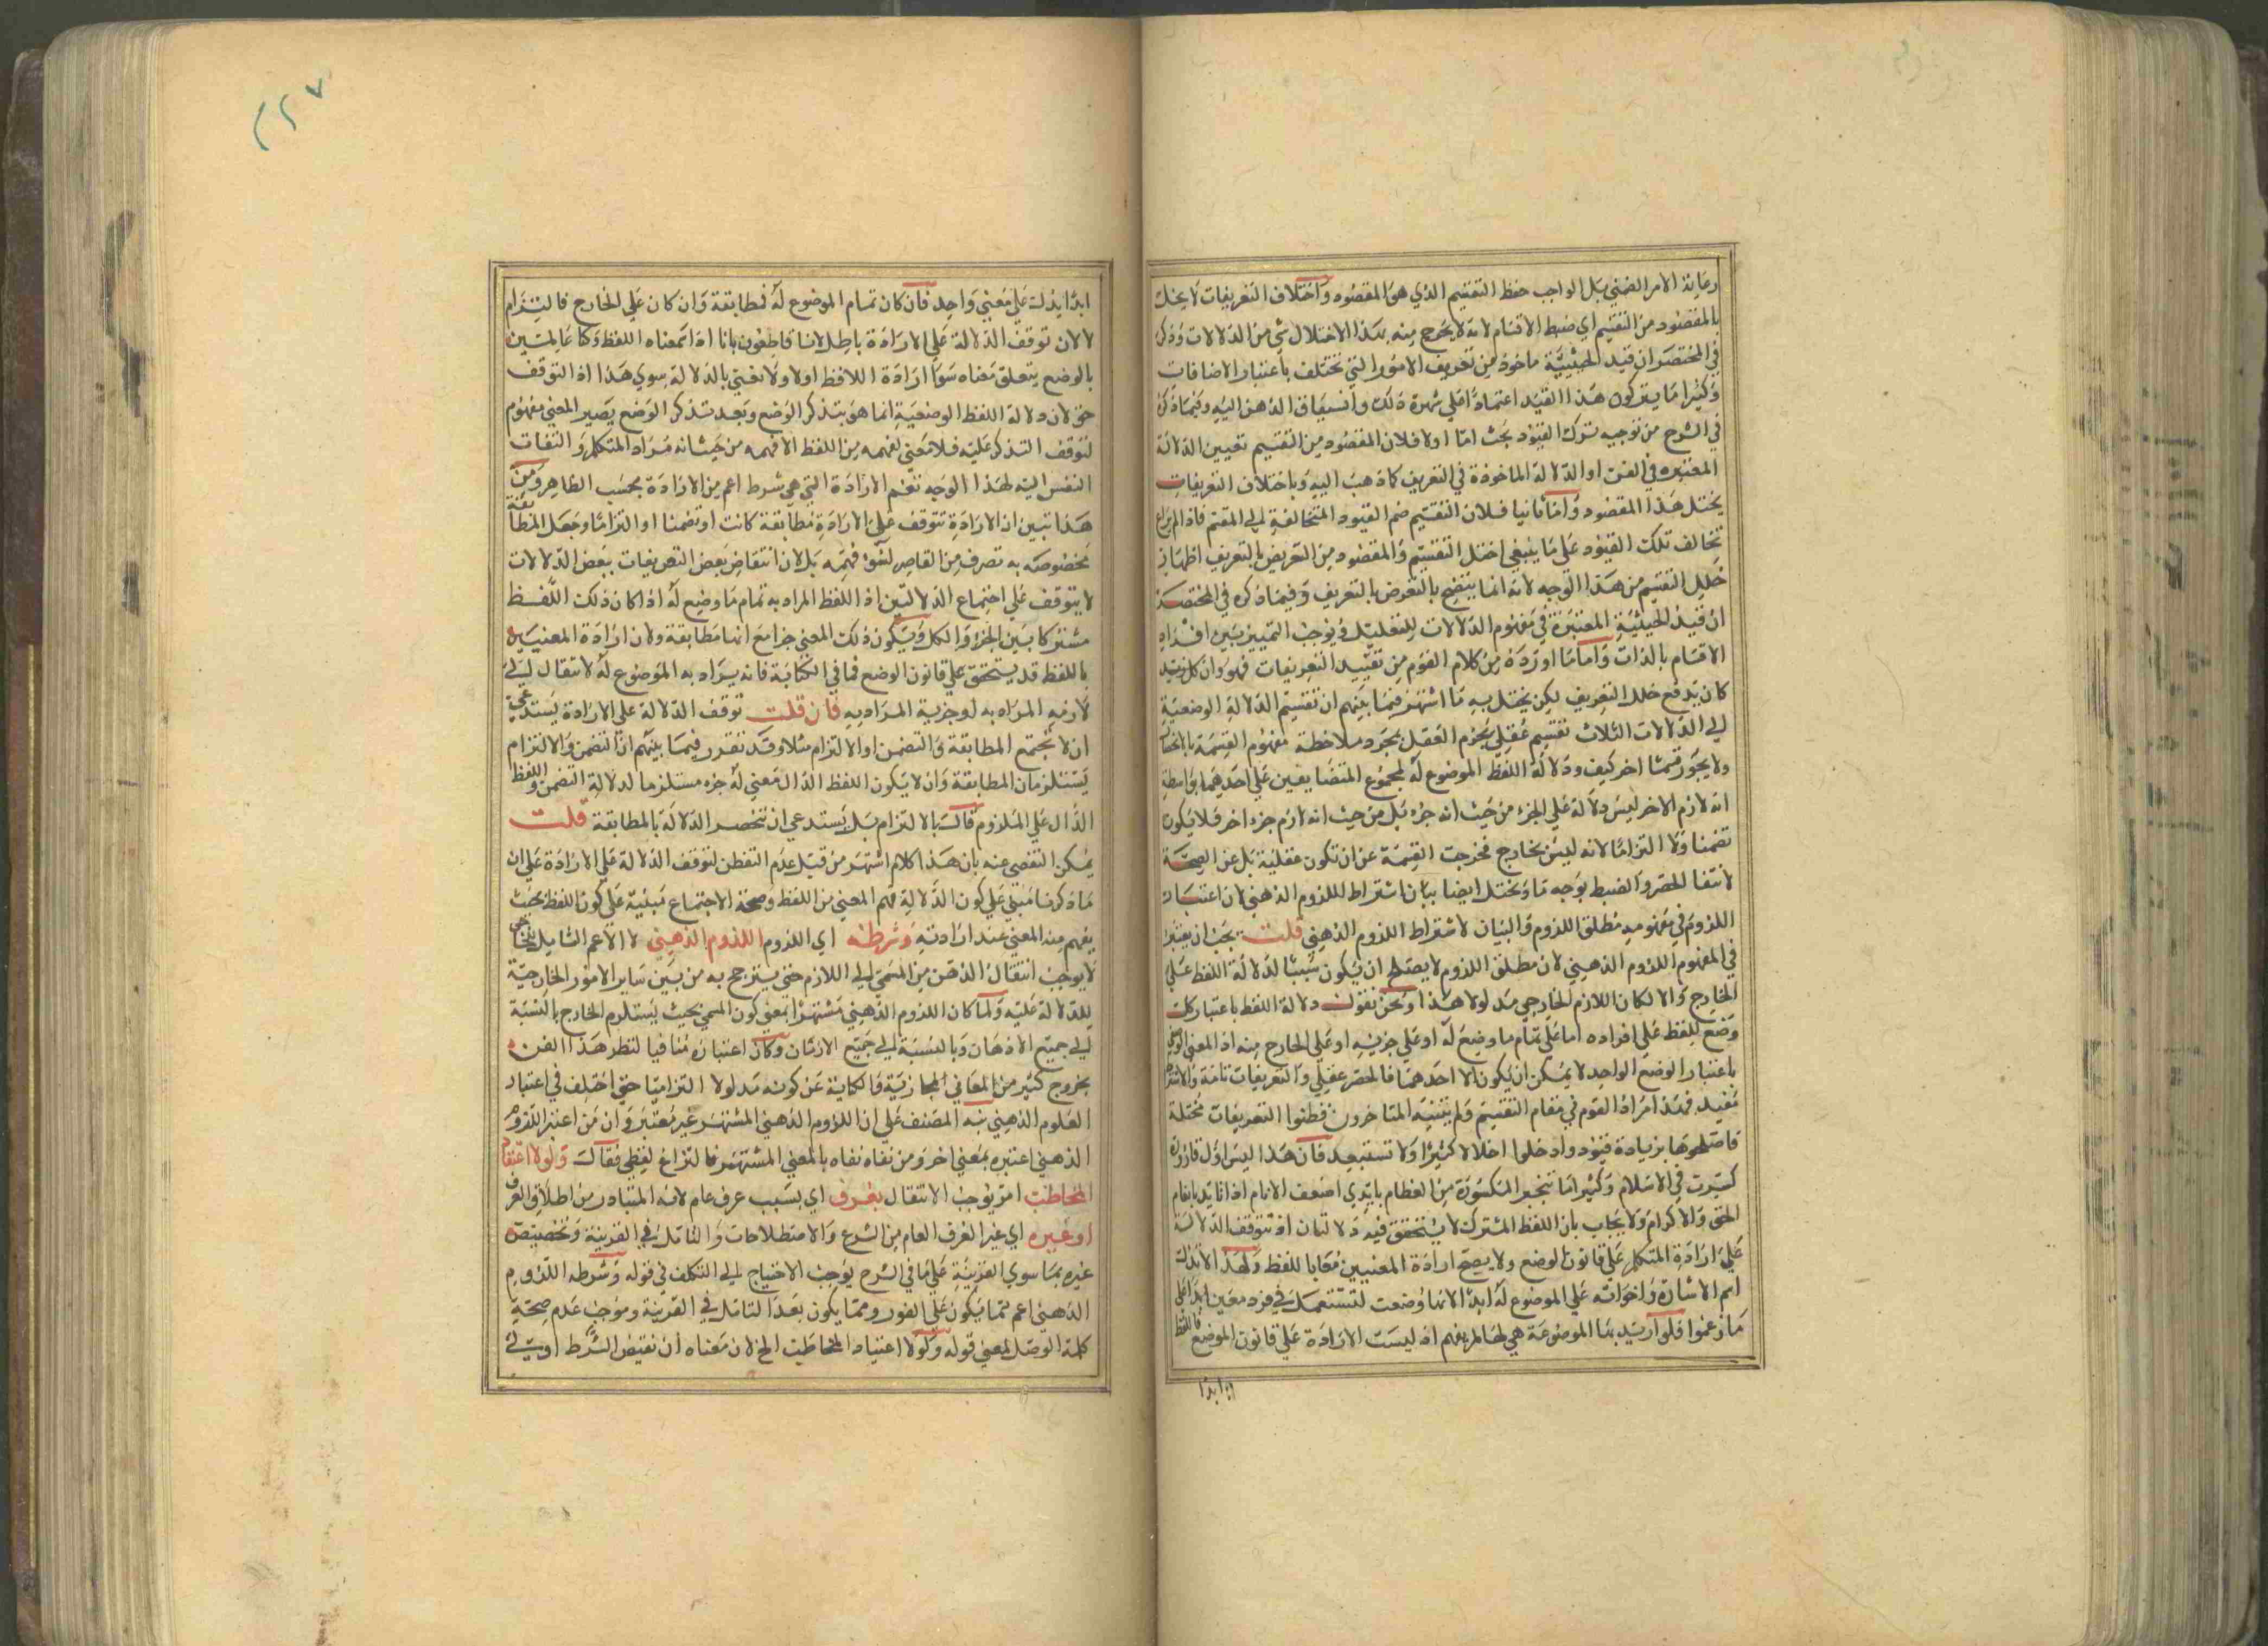 رعاية الامر الضمني بل الواجب حفظ التقسيم الذي هو المقصود واختلاف التعريفات لا يخل
بالمقصود من التقسيم اي ضبط الاقسام لانه لا يخرج منه بهذا الاختلال شي من الدلالات وذكر
في المختصر ان قيد الحيثية ماخوذ من تعريف الامور التي تختلف باعتبار الاضافات
وكثيرا ما يتركون هذا القيد اعتمادا على شهرة ذلك وانسياق الذهن اليه وفيما ذكر
في الشرح من توجيه ترك القيود بحث اما اولا فلان المقصود من التقسيم تعيين الدلالة
المعتبره في الفن او الدلالة الماخوذة في التعريف كما ذهب اليه وباختلاف التعريفات
يختل هذا المقصود واما ثانيا فلان التقسيم ضم القيود المتخالفة الى المقسم فاذا لم يراع
تخالف تلك القيود علي ما ينبغي اختل التقسيم والمقصود من التعريض بالتعريف اظهار
خلل التقسيم من هذا الوجه لانه انما يتضح بالتعرض بالتعريف وفيما ذكره في المختصر
ان قيد الحيثية المعتبرة في مفهوم الدلالات للتعليل فيوجب التمييز بين افراد
الاقسام بالذات واما ما اورده من كلام القوم من تقييد التعريفات فهو وان كان يفيد
كان يدفع خلل التعريف لكن يختل به ما اشتهر فيما بينهم ان تقسيم الدلالة الوضعية
الي الدلالات الثلاث تقسيم عقلي يجزم العقل بمجرد ملاحظة مفهوم القسمة بالانحصار
ولا يجوز قسما اخر كيف ودلالة اللفظ الموضوع له لمجموع المتضايفين علي احدهما بواسطة
انه لازم الاخر ليس دلالة علي الجزء من حيث انه جزء بل من حيث انه لازم جزء اخر فلا يكون
تضمنا ولا التزاما لانه ليس بخارج فخرجت القسمة عن ان تكون عقلية بل عن الصحة
لانتفا الحصر والضبط بوجه ما ويختل ايضا بيان اشتراط اللزوم الذهني لان اعتبار
اللزوم في مفهوميه مطلق اللزوم والبيان لاشتراط اللزوم الذهني قلت يجب ان يعتبر
في المفهوم اللزوم الذهني لان مطلق اللزوم لا يصلح ان يكون سببا لدلالة اللفظ علي
الخارج والا لكان اللازم الخارجي مدلولا هذا ونحن نقول دلالة اللفظ باعتبار كل
وضع للفظ علي افراده اما على تمام ما وضع له او على جزئيه او على الخارج منه اذ المعني الوضعي
باعتبار الوضع الواحد لا يمكن ان يكون الا احدهما فالحصر عقلي والتعريفات تامة والانتقاض
نقيد فهذا مراد القوم في مقام التقسيم ولم يتنبه المتاخرون فظنوا التعريفات مختلة
فاصلحوها بزيادة قيود وادخلوا اخلالا كثيرا ولا تستبعد فان هذا ليس اول قارورة
كسرت في الاسلام وكثيرا ما تنجبر المكسورة من العظام بايدي اضعف الانام اذا تايد بانعام
الحق والاكرام ولا يجاب بان اللفظ المشترك لا يتحقق فيه دلالتان اذ تتوقف الدلالة
علي ارادة المتكلم علي قانون الوضع ولا يصح ارادة المعنيين معا باللفظ ولهذا لا تدل
اسم الاشارة واخواته على الموضوع له ابدا لانها وضعت لتستعمل في فرد معين ابدا على
ما زعموا فلو اريد بها الموضوعة هي لها لم يفهم اذ ليست الارادة علي قانون الموضع فاللفظ
ابدا
٢٢٧
ابدا يدل علي معني واحد فان كان تمام الموضوع له فمطابقة وان كان علي الخارج فالتزام
لا لان توقف الدلالة علي الارادة باطل لانا قاطعون بانا اذا سمعناه اللفظ وكنا عالمين
بالوضع يتعلق معناه سوا اراده اللافظ او لا ولا نعني بالدلالة سوي هذا اذ التوقف
حق لان دلالة اللفظ الوضعية انما هو بتذكر الوضع وبعد تذكر الوضع يصير المعني مفهوم
لتوقف التذكر عليه فلا معني لفهمه من اللفظ الا فهمه من حيث انه مراد المتكلم والتفات
النفس اليه لهذا الوجه نعم الارادة التي هي شرط اعم من الارادة بحسب الظاهر ومن
هذا تبين ان الارادة تتوقف علي الارادة مطابقة كانت او تضمنا او التزاما وجعل المطابقة
بخصوصه به تصرف من القاصر لسوء فهمه بل لان انتقاض بعض التعريفات ببعض الدلالات
لا يتوقف علي اجتماع الدلالتين اذ اللفظ المراد به تمام ما وضع له اذا كان ذلك اللفظ
مشتركا بين الجزء والكل ويكون ذلك المعني جزا مع انها مطابقة ولان ارادة المعنيين
باللفظ قد يستحقق علي قانون الوضع كما في الكناية فانه يراد به الموضوع له لانتقال الي
لازمه المراد به لو جزية المراد به فان قلت توقف الدلالة علي الارادة يستدعي
ان لا تجتمع المطابقة والتضمن او الالتزام مثلا وقد تقرر فيما بينهم ان التضمن والالتزام
يستلزمان المطابقة وان لا يكون اللفظ الدال معني له جزء مستلزما لدلالة التضمن واللفظ
الدال علي الملزوم فالت بالالتزام بل يستدعي ان تنحصر الدلالة بالمطابقة قلت
يمكن التفصي عنه بان هذا كلام اشتهر من قبل عدم التفطن لتوقف الدلالة علي الارادة علي ان
ما ذكرنا مبني علي كون الدلالة فهم المعني من اللفظ وصحة الاجتماع مبنية علي كون اللفظ بحيث
يفهم منه المعني عند ارادته وشرطه اي اللزوم اللزوم الذهني لا الاعم الشامل للخارجي
لا يوجب انتقال الذهن من المسمي الي اللازم حتي يترجح به من بين ساير الامور الخارجية
للدلالة عليه ولما كان اللزوم الذهني مشتهرا بمعني كون المسمي بحيث يستلزم الخارج بالنسبة
الي جميع الاذهان وبالنسبة الي جميع الازمان وكان اعتباره منافيا لنظر هذا الفن
بخروج كثير من المعاني المجازية والكناية عن كونه مدلولا التزاميا حتي اختلف في اعتبار
العلوم الذهني نبه المصنف علي ان اللزوم الذهني المشتهر غير معتبر وان من اعتبر اللزوم
الذهني اعتبره بمعني اخر ومن نفاه نفاه بالمعني المشتهر فالنزاع لفظي فقال ولو لاعتقاد
المخاطب امر يوجب الانتقال بعرف اي بسبب عرف عام لانه المتبادر من اطلاق العرف
او غيره اي غير العرف العام من الشرع والاصطلاحات والتامل في القرينة وتخصيص
غيره بما سوي القرينة علي ما في الشرح يوجب الاحتياج الي التكلف في قوله وشرطه اللزوم
الذهني اعم مما يكون علي الفور ومما يكون بعد التامل في القرينة وموجب عدم صحة
كلمة الوصل لمعني قوله ولو لا اعتياد المخاطب الخ لان معناه ان نقيض الشرط اولى